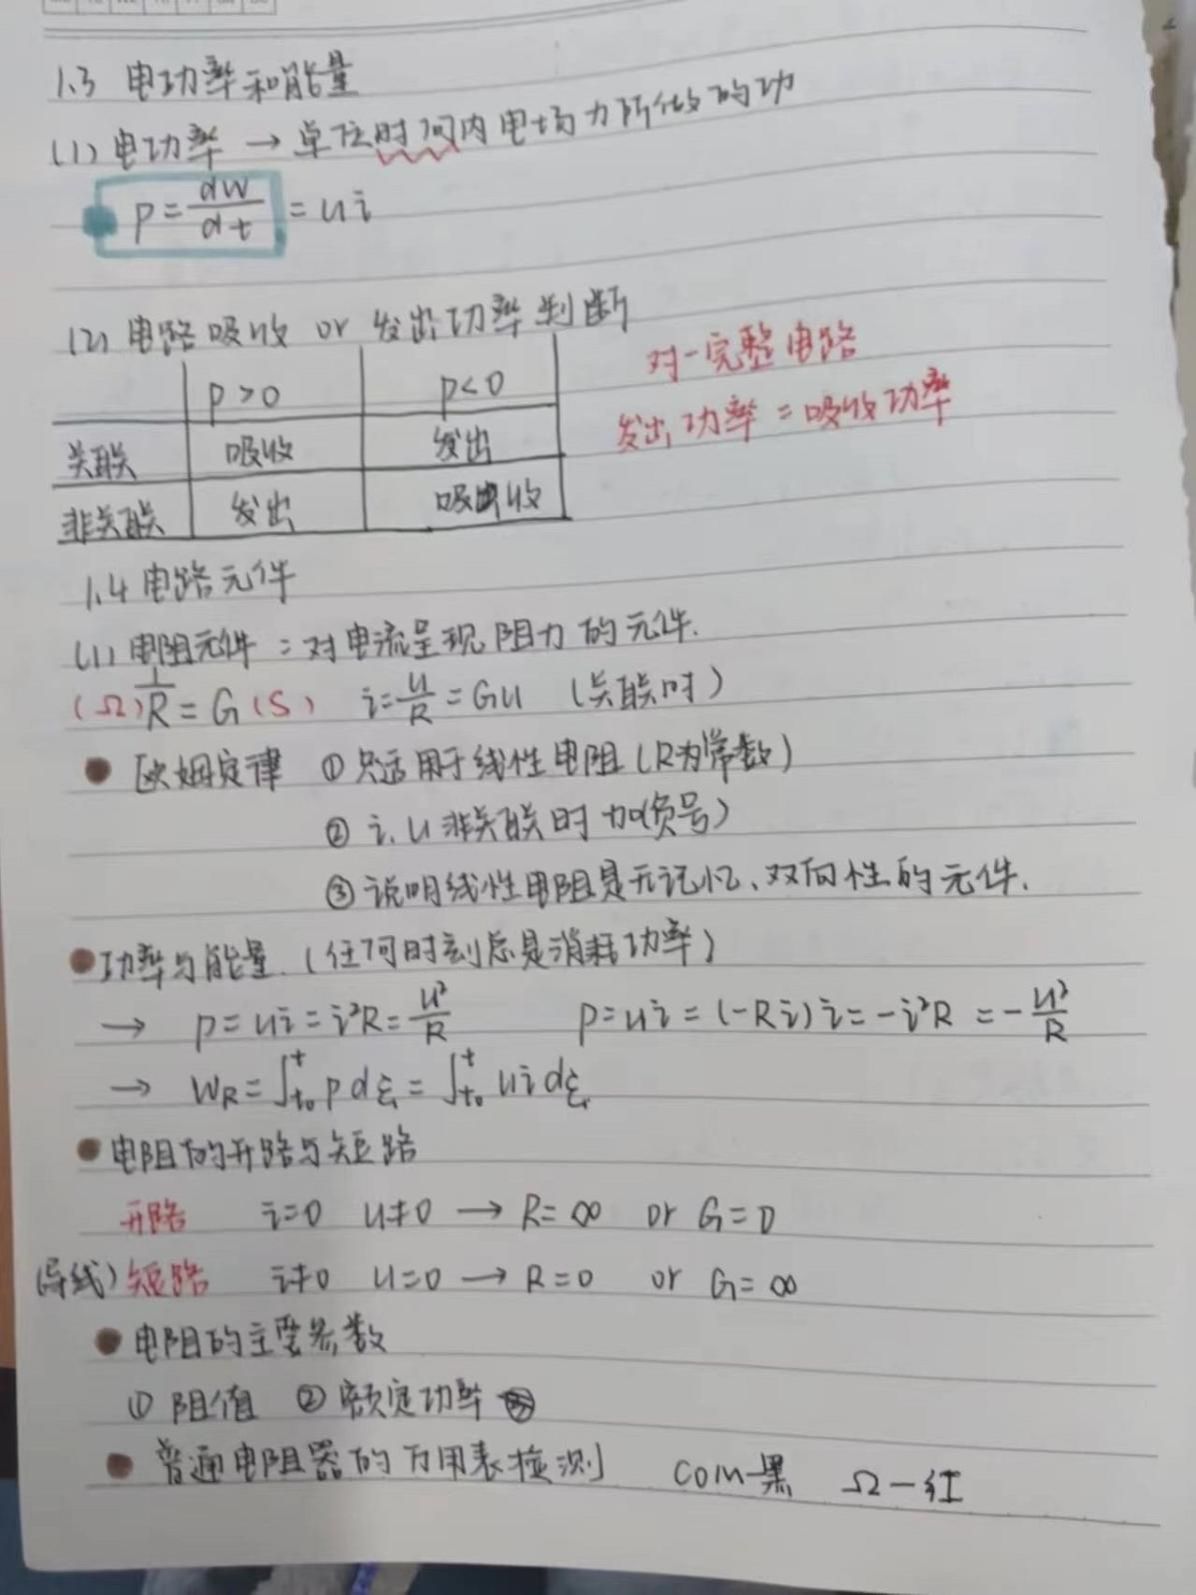 1.3 电功率和能量
(1) 电功率 → 单位时间内电场力所做的功
p = dw/dt = ui
(2) 电路吸收 or 发出功率判断
p > 0 p < 0
关联 吸收 发出
非关联 发出 吸收
对一完整电路
发出功率 = 吸收功率
1.4 电路元件
(1) 电阻元件：对电流呈现阻力的元件.
(Ω) 1/R = G (S) i = u/R = Gu (关联时)
● 欧姆定律 ① 只适用于线性电阻 (R为常数)
② i. u 非关联时加(负号)
③ 说明线性电阻是无记忆、双向性的元件.
● 功率与能量. (任何时刻总是消耗功率)
→ p = ui = i²R = u²/R p = ui = (-Ri)i = -i²R = -u²/R
→ WR = ∫ₜ₀ᵗ p dξ = ∫ₜ₀ᵗ ui dξ
● 电阻的开路与短路
开路 i=0 u≠0 → R=∞ or G=0
(导线) 短路 i≠0 u=0 → R=0 or G=∞
● 电阻的主要参数
① 阻值 ② 额定功率
● 普通电阻器的万用表检测 COM-黑 Ω-红